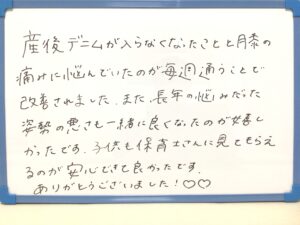 産後デニムが入らなくなったことと膝の
痛みに悩んでいたのが毎週通うことで
改善されました。また、長年の悩みだった
姿勢の悪さも一緒に良くなったのが嬉し
かったです。子供も保育士さんに見てもらえ
るのが安心できて良かったです。
ありがとうございました!♡♡